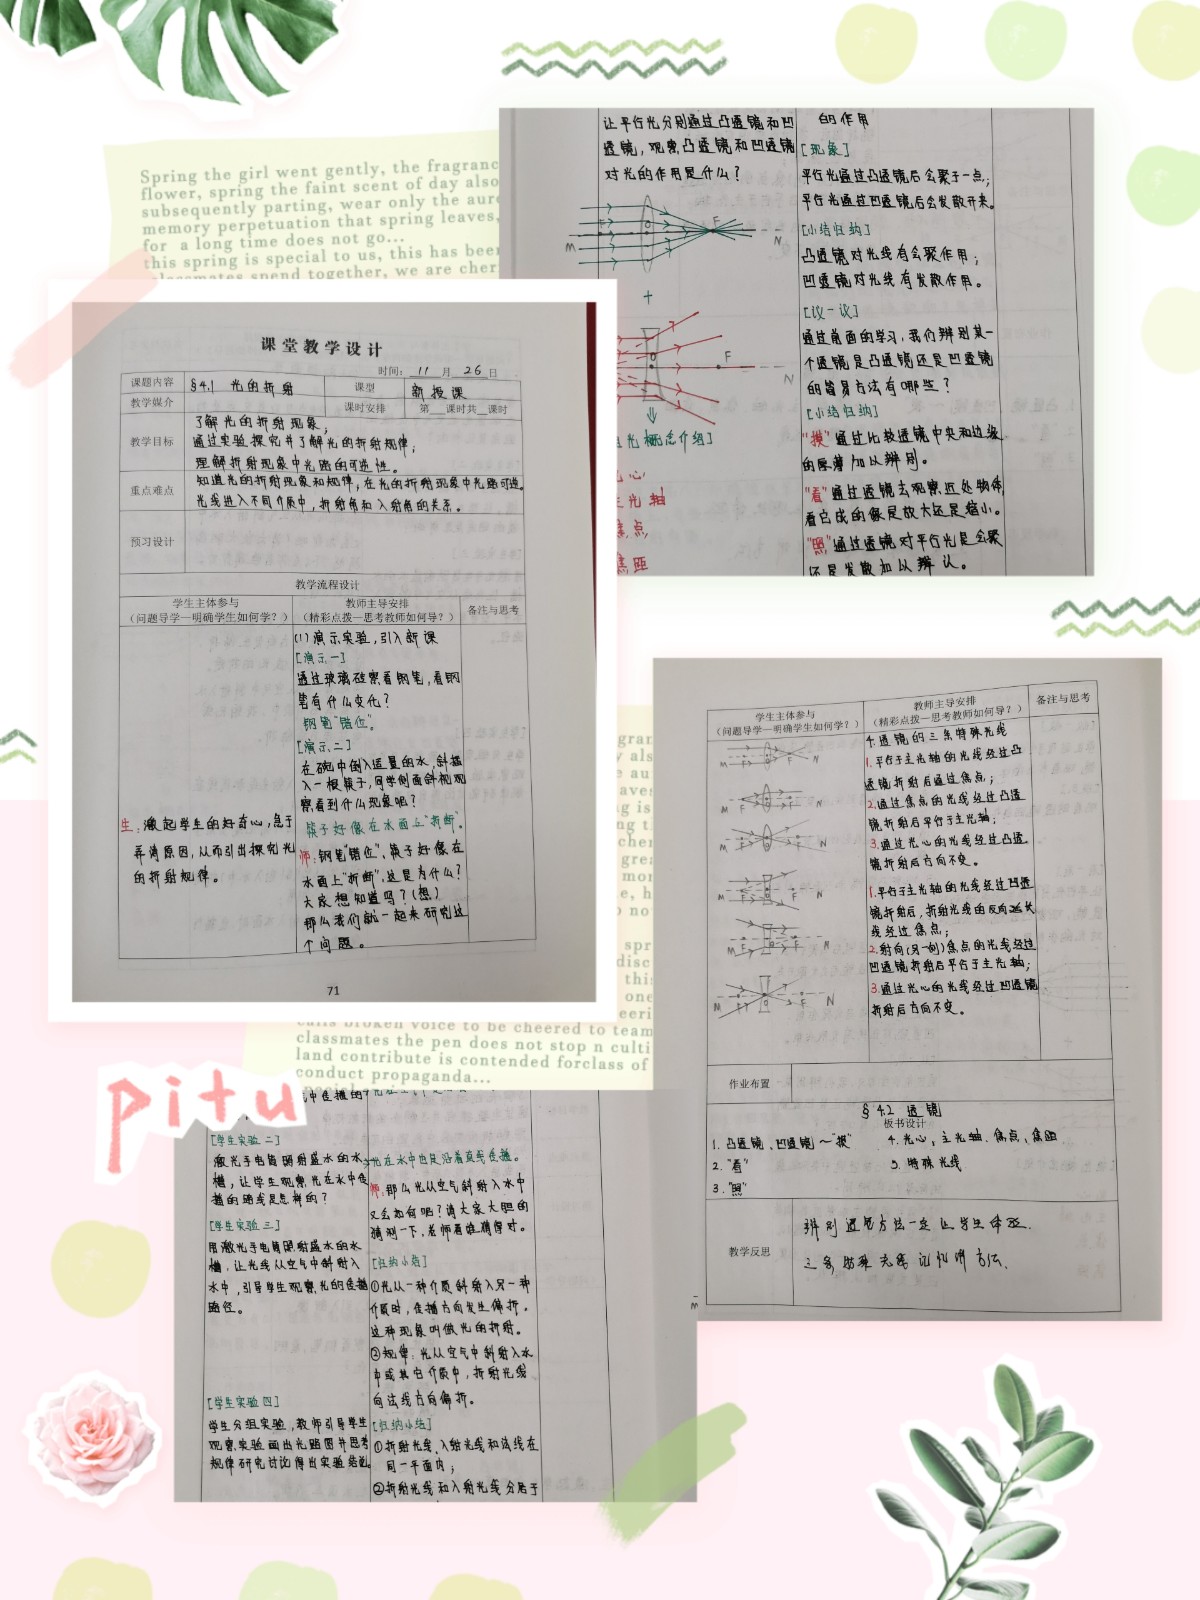 Spring the girl went gently, the fragranc
flower, spring the faint scent of day also
subsequently parting, wear only the aure
memory perpetuation that spring leaves,
for a long time does not go...
this spring is special to us, this has been
让平行光分别通过凸透镜和凹
透镜，观察凸透镜和凹透镜
对光的作用是什么？
F
O
M
N
+
O
F
N
光概念介绍]
光心
主光轴
焦点
焦距
的作用
[现象]
平行光通过凸透镜后会聚于一点；
平行光通过凹透镜后会发散开来。
[小结归纳]
凸透镜对光线有会聚作用；
凹透镜对光线有发散作用。
[议一议]
通过前面的学习，我们辨别某一
个透镜是凸透镜还是凹透镜
的简易方法有哪些？
[小结归纳]
"摸"通过比较透镜中央和边缘
的厚薄加以辨别。
"看"通过透镜去观察近处物体，
看它成的像是放大还是缩小。
"照"通过透镜对平行光是会聚
还是发散加以辨认。
课堂教学设计
时间：11月26日
课题内容 §4.1 光的折射 课型 新授课
教学媒介 课时安排 第 课时共 课时
教学目标
了解光的折射现象；
通过实验探究并了解光的折射规律；
理解折射现象中光路的可逆性。
重点难点
知道光的折射现象和规律，在光的折射现象中光路可逆。
光线进入不同介质中，折射角和入射角的关系。
预习设计
教学流程设计
学生主体参与
（问题导学—明确学生如何学？）
教师主导安排
（精彩点拨—思考教师如何导？）
备注与思考
生：激起学生的好奇心，急于
弄清原因，从而引出探究光
的折射规律。
(1)演示实验，引入新课
[演示一]
通过玻璃砖察看钢笔，看钢
笔有什么变化？
钢笔"错位"。
[演示二]
在碗中倒入适量的水，斜插
入一根筷子，同学侧面斜视观
察看到什么现象呢？
筷子好像在水面上"折断"。
师：钢笔"错位"、筷子好像在
水面上"折断"，这是为什么？
大家想知道吗？(想)
那么我们就一起来研究这
个问题。
71
calls broken voice to be cheered to team
classmates the pen does not stop n culti
land contribute is contended forclass of
conduct propaganda...
pitu
学生主体参与
（问题导学—明确学生如何学？）
教师主导安排
（精彩点拨—思考教师如何导？）
备注与思考
4.透镜的三条特殊光线
1.平行于主光轴的光线经过凸
透镜折射后通过焦点；
2.通过焦点的光线经过凸透
镜折射后平行于主光轴；
3.通过光心的光线经过凸透
镜折射后方向不变。
1.平行于主光轴的光线经过凹透
镜折射后，折射光线的反向延长
线经过焦点；
2.射向(另一侧)焦点的光线经过
凹透镜折射后平行于主光轴；
3.通过光心的光线经过凹透镜
折射后方向不变。
作业布置
§4.2 透镜
板书设计
1.凸透镜、凹透镜～"摸"
2."看"
3."照"
4.光心，主光轴、焦点、焦距
5.特殊光线
教学反思
辨别透镜方法一定让学生体验.
三条特殊光线
[学生实验二]
激光手电筒照射盛水的水
槽，让学生观察光在水中传
播的路线是怎样的？
[学生实验三]
用激光手电筒照射盛水的水
槽，让光线从空气中斜射入
水中，引导学生观察光的传播
路径。
[学生实验四]
学生分组实验，教师引导学生
观察实验画出光路图并思考
规律研究讨论得出实验结论
光在水中也是沿着直线传播。
师：那么光从空气斜射入水中
又会如何呢？请大家大胆的
猜测一下，老师看谁猜得对。
[归纳小结]
①光从一种介质斜射入另一种
介质时，传播方向发生偏折。
这种现象叫做光的折射。
②规律：光从空气中斜射入水
中或其它介质中，折射光线
向法线方向偏折。
[归纳小结]
①折射光线、入射光线和法线在
同一平面内；
②折射光线和入射光线分居于